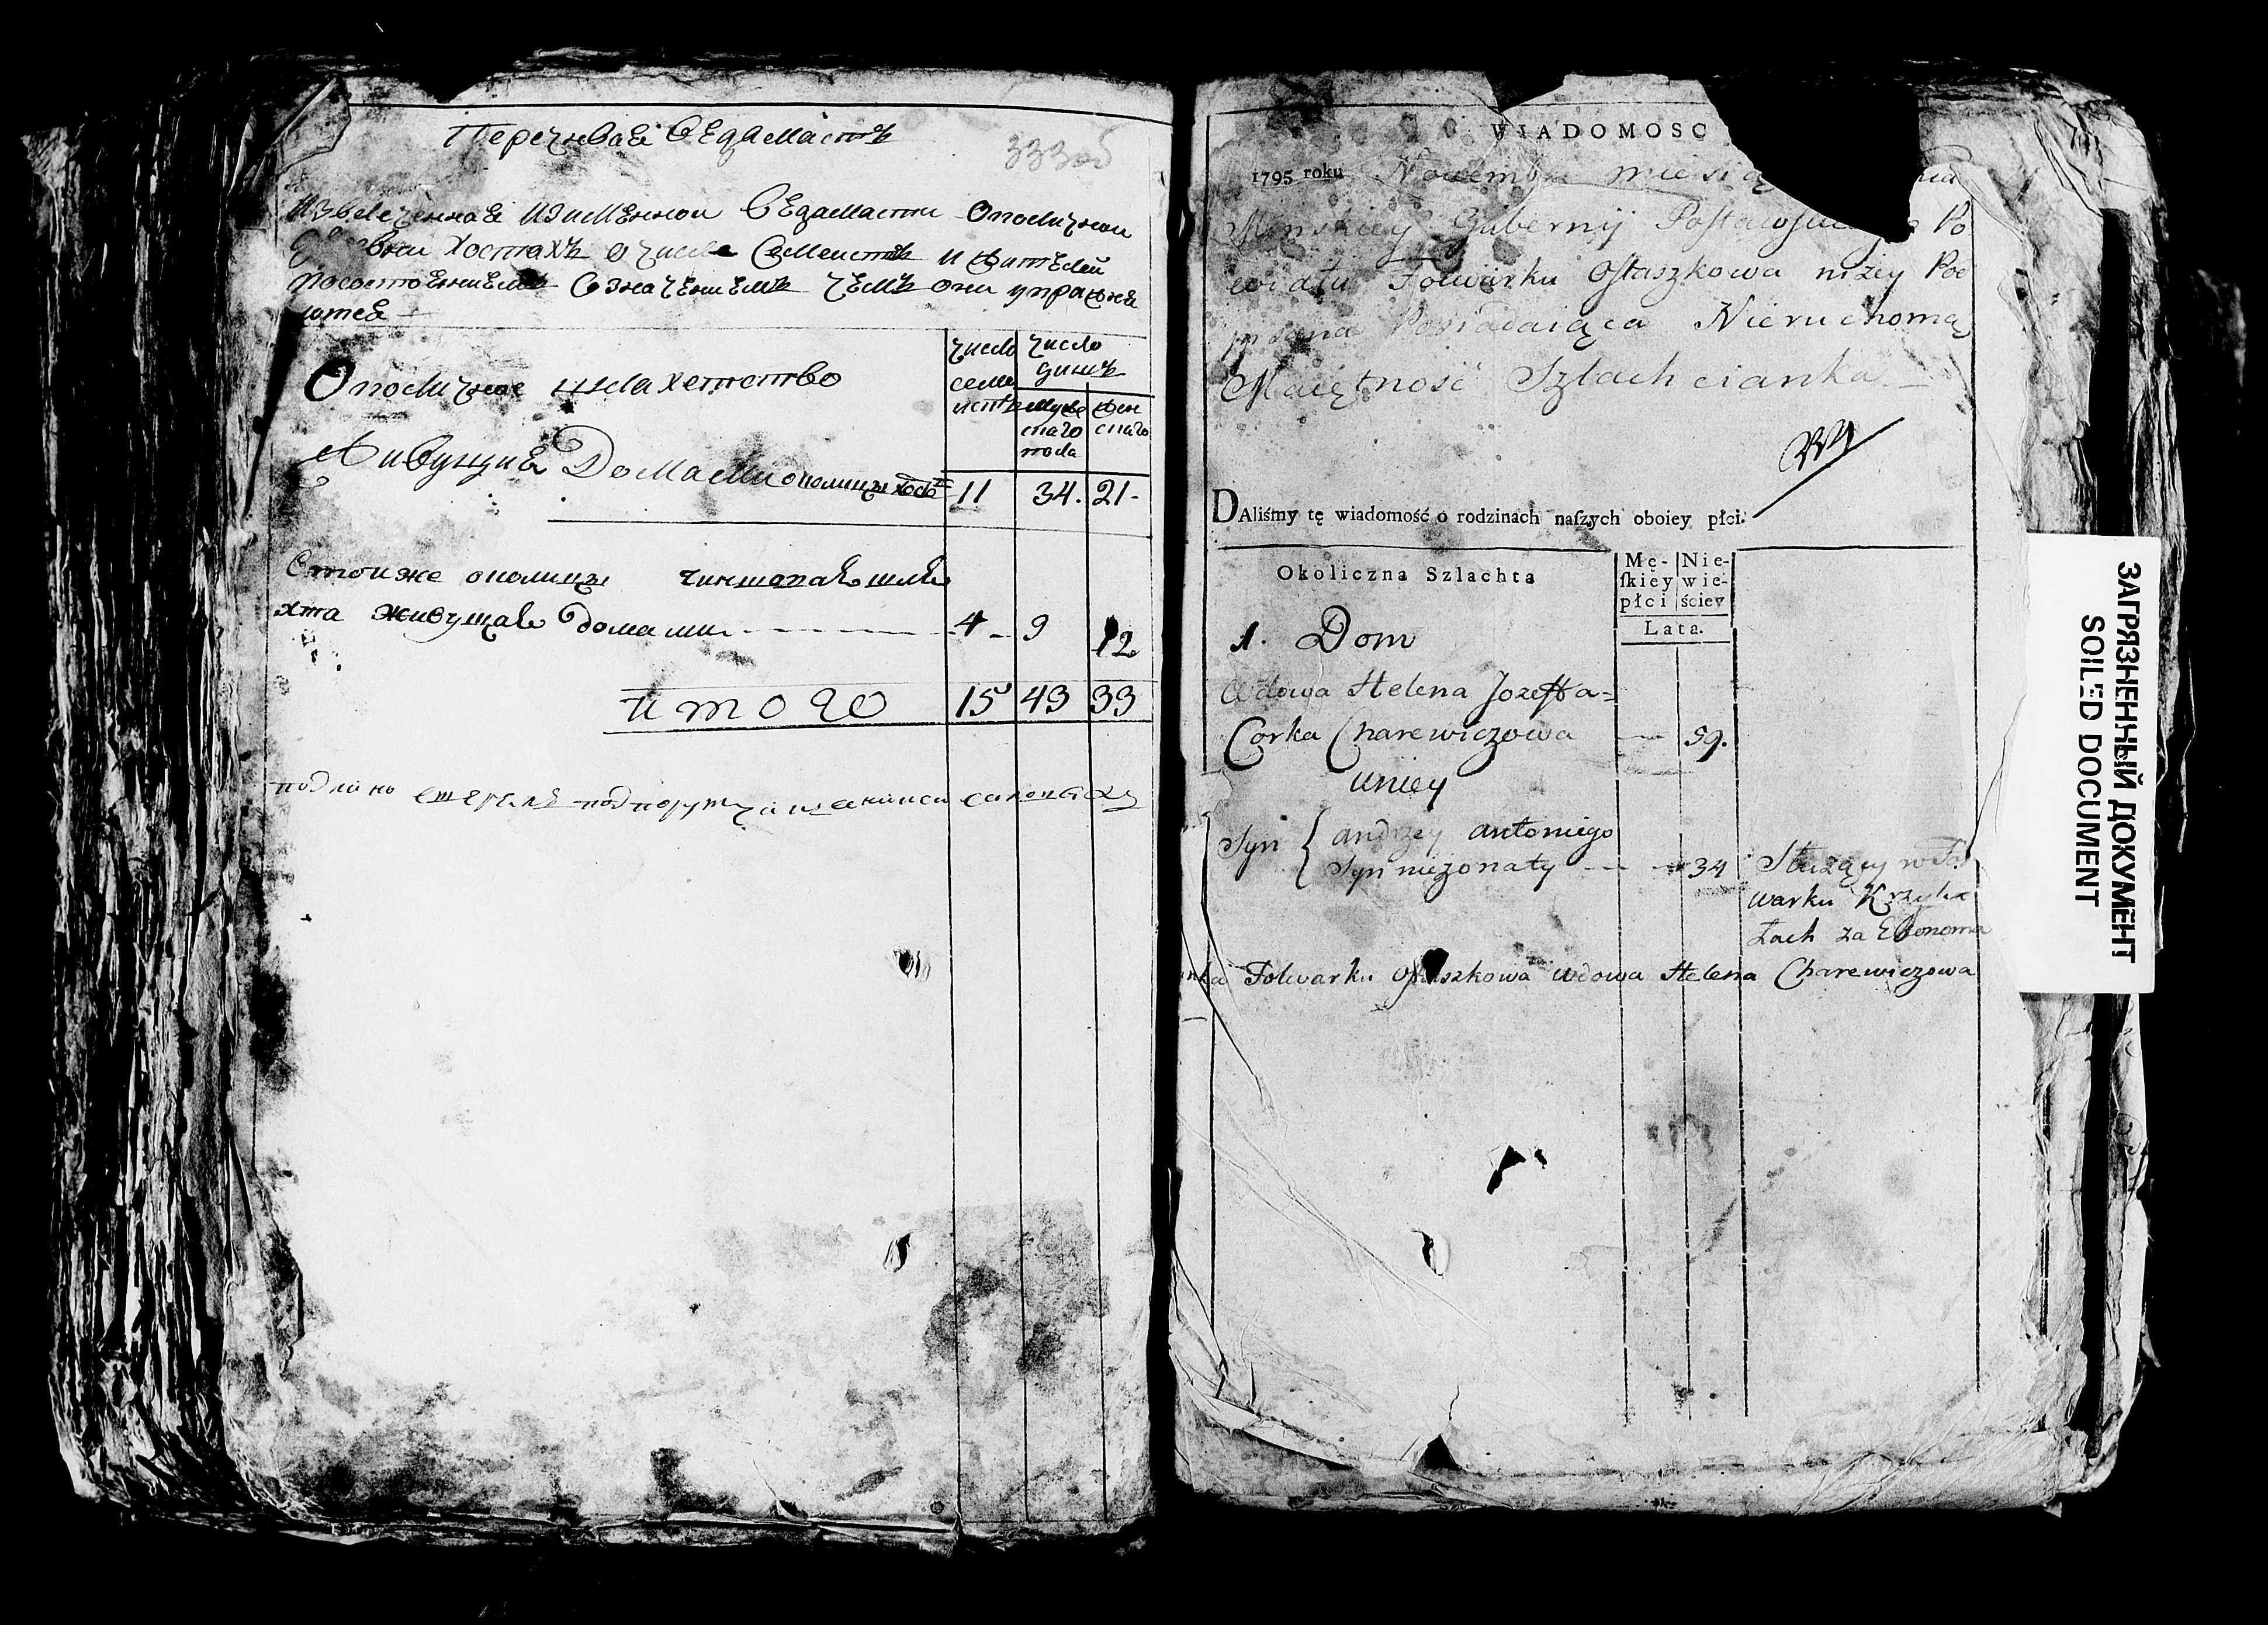 Перечневая Ведамасть
333об
Извлеченная изимённои Ведамасти Околичнои
Хостахъ О числе Семеисть и жителей
Посостоянием Сзначениемъ чемъ они упражня
ютса
Околичное шлахетство
Живущиа Домами околицы
число
семе
исть
число
душъ
муже
скаго
пола
жен
скаго
11 34. 21-
Стоиже околицы чиншовая шля
хта живущая домами - - - - 4 - 9 12
итого 15 43 33
WIADOMOSC
1795 roku Novembra miesią
Minskiey Gubernij Po
wiatu Folwarku Ostaszkowa niżey Po
pisana Posiadaiąca Nieruchomą
Maiętność Szlachcianka
DAliśmy tę wiadomość o rodzinach naſzych oboiey płci.
Okoliczna Szlachta
Mę-
ſkiey
płci
Nie-
wie-
ściey
Lata.
1. Dom
Wdowa Helena Jozeffa=
Corka Charewiczowa — 59.
uniey
Syn { andrzey antoniego
Syn nieżonaty - - - 34 Słuzący w Fol
warku
łach za Ekonoma
Folwarku Ostaszkowa wdowa Helena Charewiczowa
ЗАГРЯЗНЕННЫЙ ДОКУМЕНТ
SOILED DOCUMENT